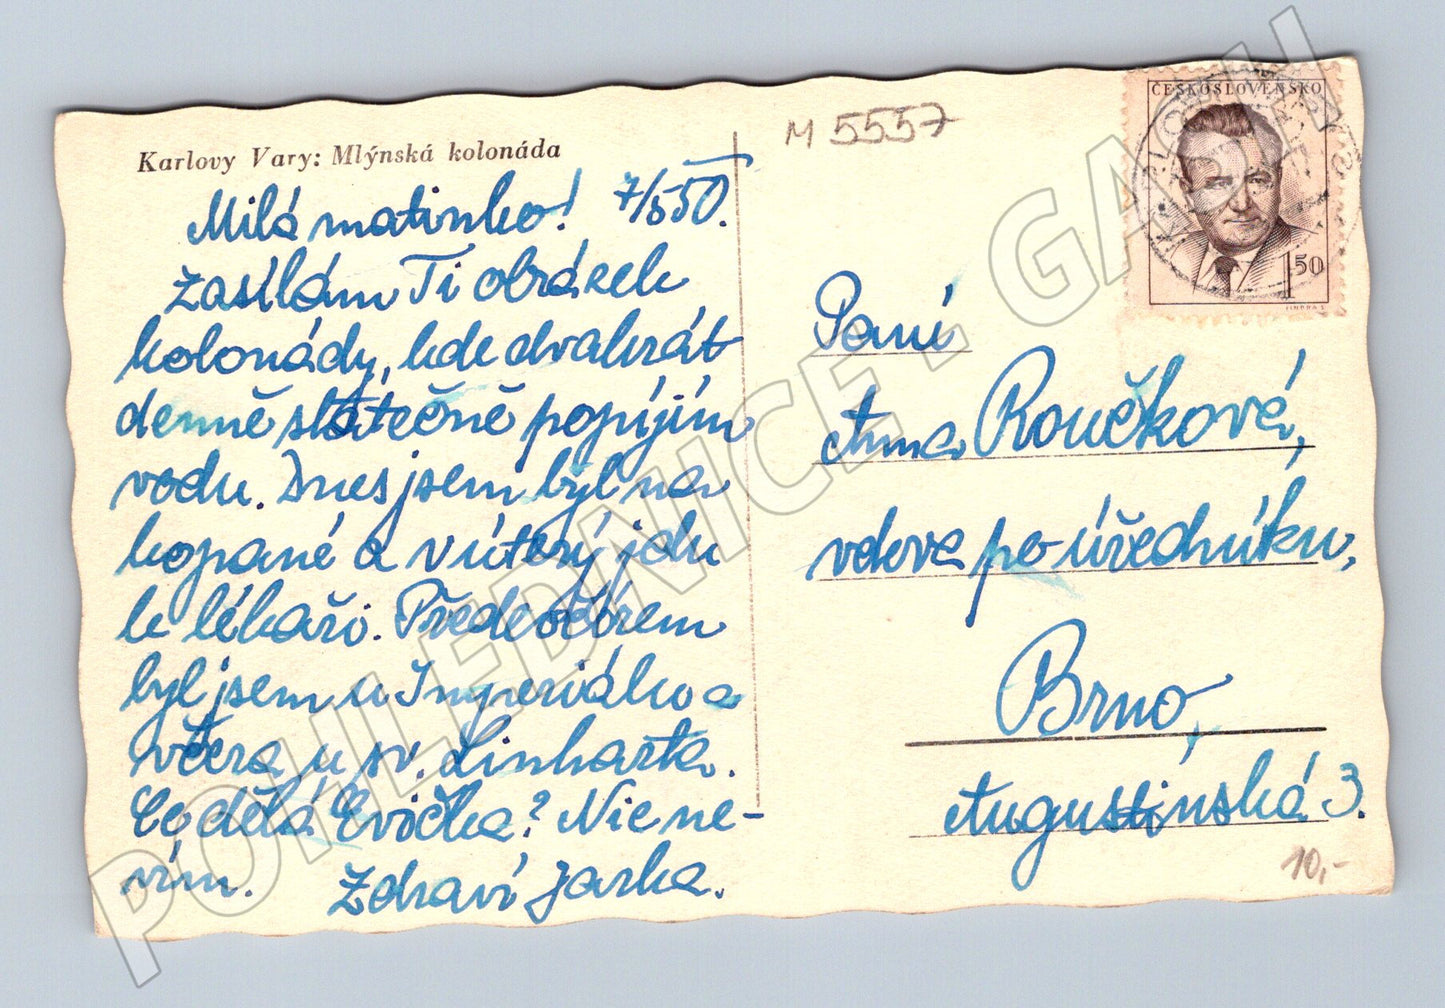 Karlovy Vary: Mlýnská kolonáda
Milá matinko! 7/5 50.
Zasílám Ti obrázek
kolonády, kde dvakrát
denně statečně popíjím
vodu. Dnes jsem byl na
kopané a v úterý jdu
k lékaři. Předevčírem
byl jsem u Imperiálu a
včera u sv. Linharta.
Co dělá Evička? Nic ne-
vím. Zdraví Jarka.
M 5557
ČESKOSLOVENSKO
1 50
Paní
Anna Roučková,
vdova po úředníku,
Brno,
Augustinská 3.
10,-
POHLEDNICE - GALERIE